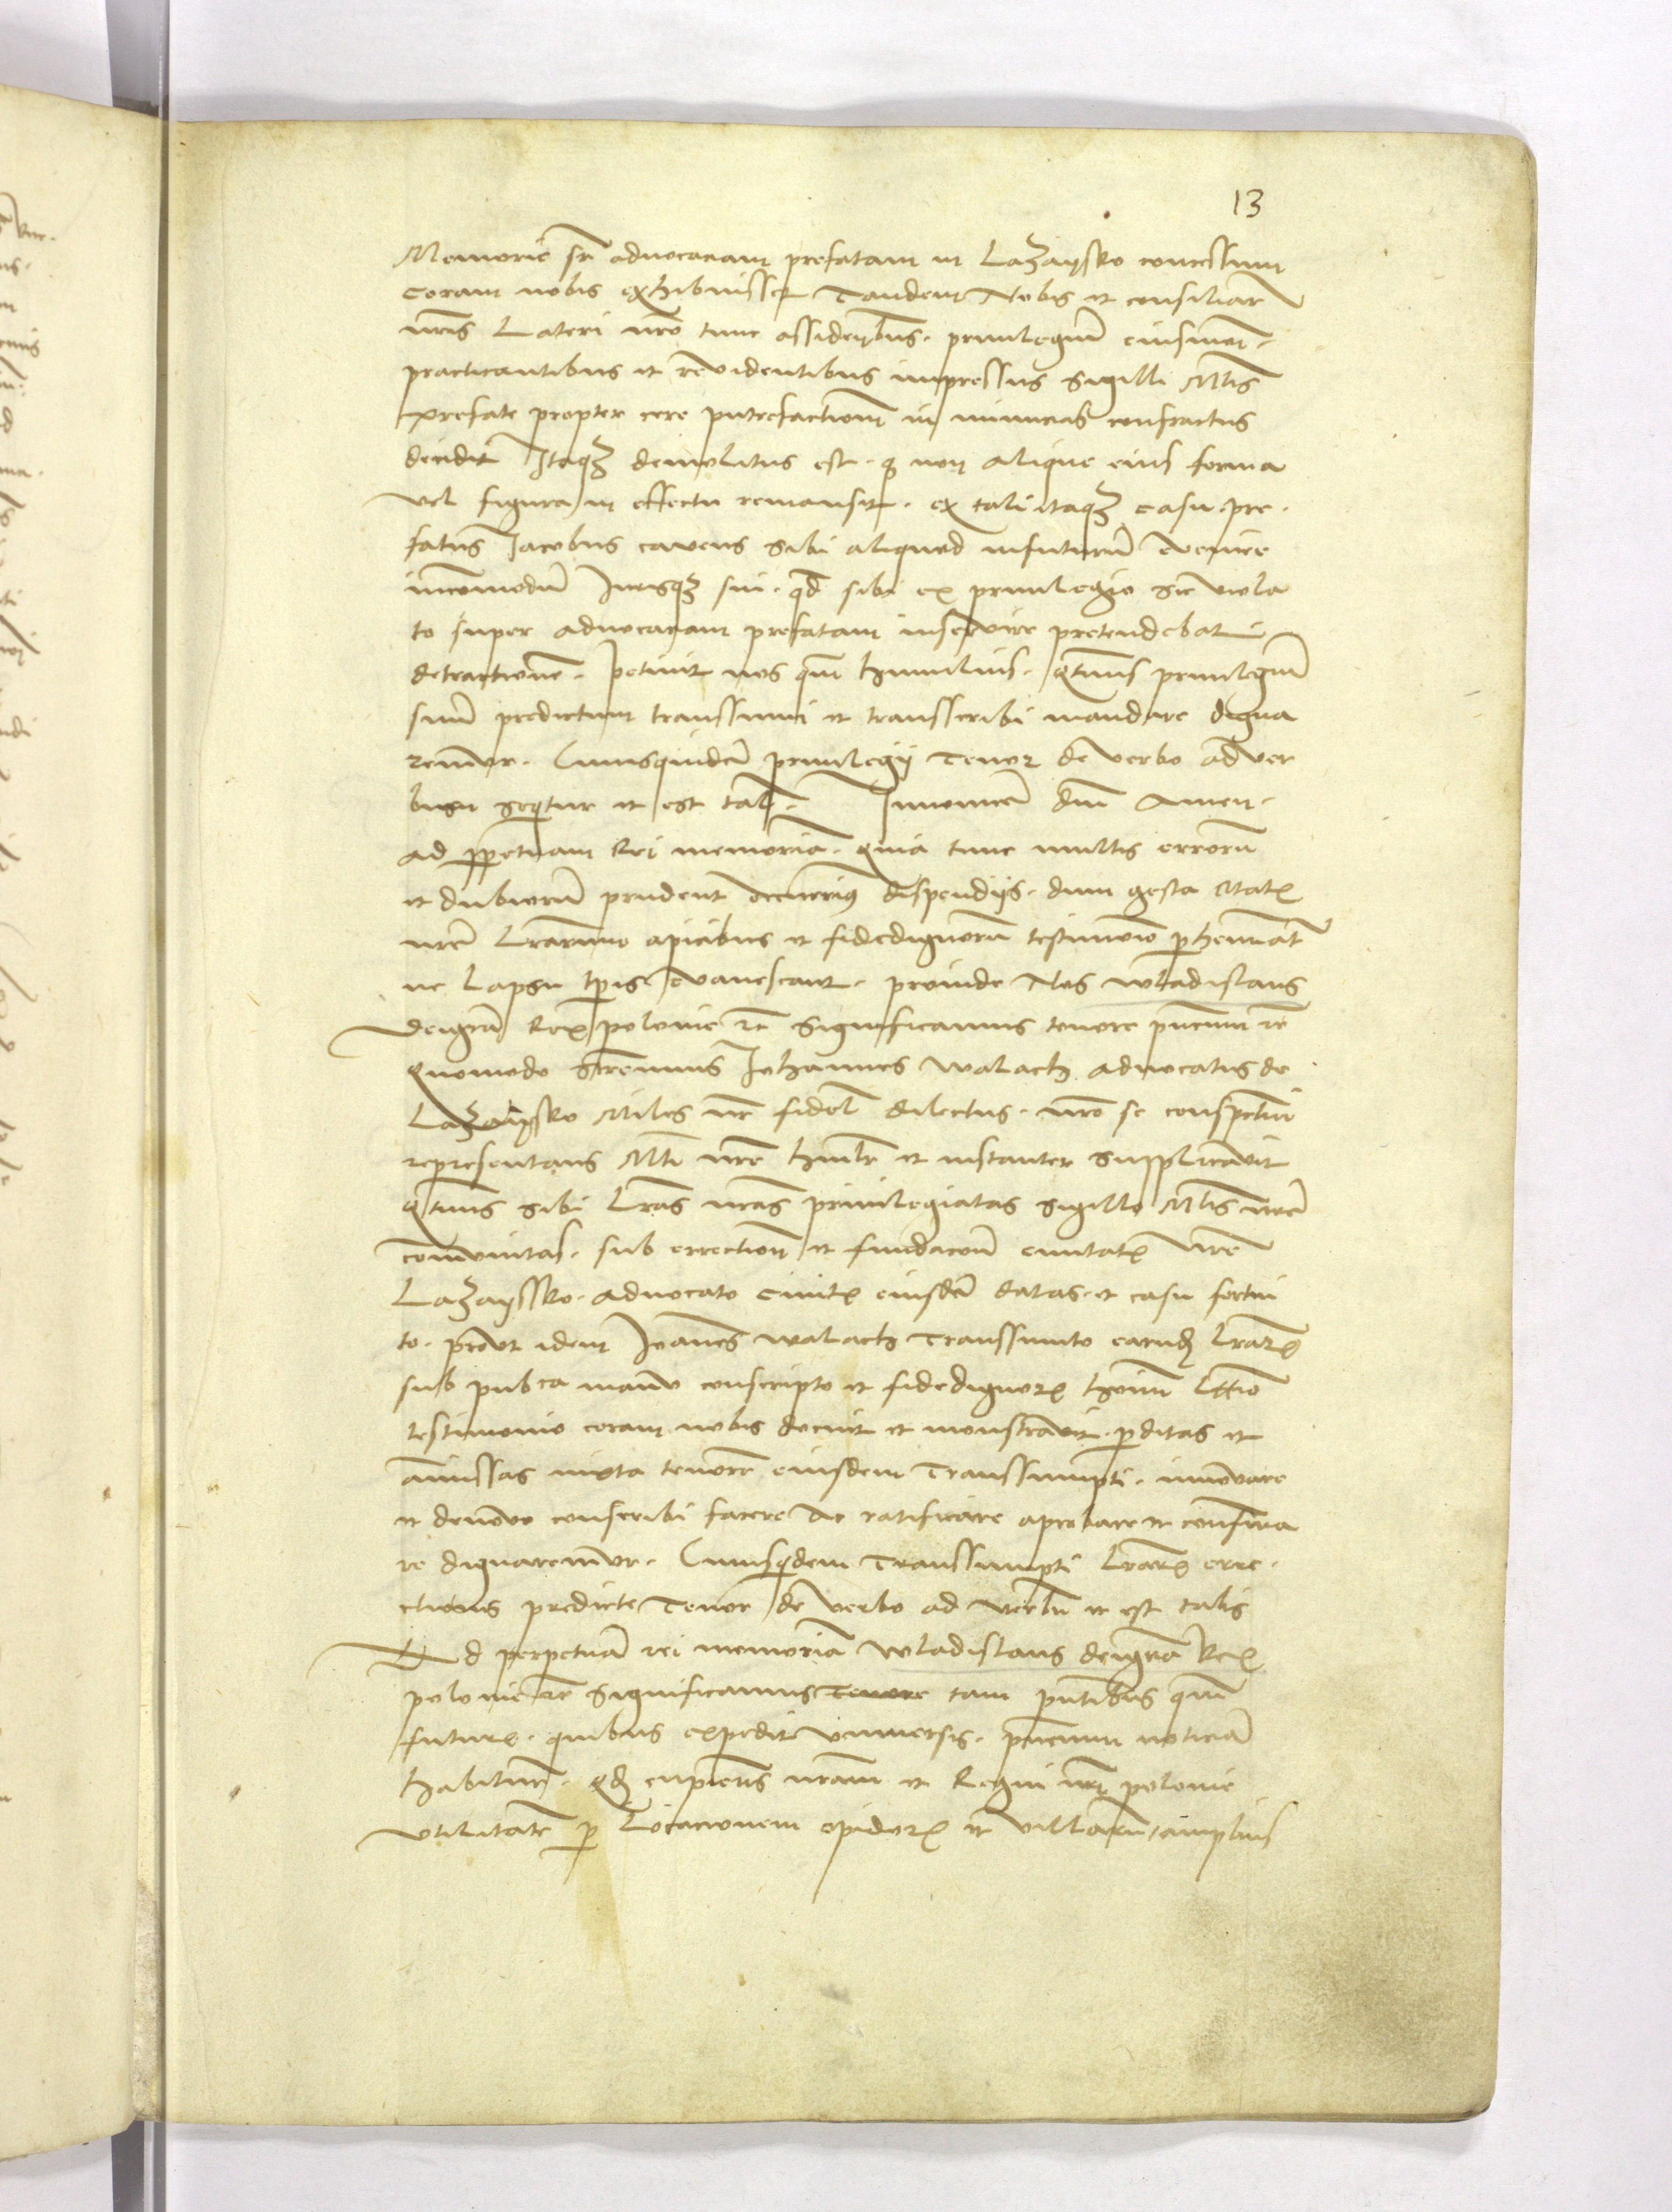 13
Memorie sr advocaciam prefatam in Lazaysko concessum
coram nobis exhibuisset Tandem Nobis et consiliar
nris Lateri nro tunc assideribus. privilegium eiusmoi
practicantibus et revidentibus impressus sigilli Mtis
prefate propter cere putrefactionem in minucias confractus
decidit Itaqz demolitus est. q non alique eius forma
vel figura in effectu remansit. ex tali itaqz casu. pre.
fatus Jacobus cavens sibi aliquod infuturu evenire
incomodu Jurisqz sui. qd sibi ex privilegio sic viola
to super advocaciam prefatam inservire pretendebat
detractione. petivit nos qm humilius. qtnus privilegiu
suum predictum transsumi et transscribi mandare digna
remur. Cuiusquidem privilegii Tenor de verbo ad ver
bum seqtur et est tal. Innomine dni Amen.
ad ppetuam Rei memoria. quia tunc multis erroru
et dubioru prudent occurrius dispendiis. dum gesta etatx
nre Lrarum apicibus et fidedignoru testimonio perhennat
ne lapsu tpis evanescant. proinde Nos wladislaus
deigra Rex polonie etc significamus tenore pncium re
Quomodo strennuus Johannes walach advocatus de
Lazaysko Miles nr fidel dilectus. nro se conspectui
representans Mti nre humilr et instanter supplicavit
qtnus sibi Lras nras privilegiatas sigillo Mtis nre
comunitas. sub errection et fundacom civitatx nre
Lazayssko. advocato civitx eiusde datas. et casu fortui
to. prout idem Joanes walach Transsumto earund Lrarx
sub pubca manu conscripto et fidedignorx hoim
testimonio coram nobis docuit et monstravit. pditas et
amissas iuxta tenore eiusdem Transsumpti. innovare
et denovo conscribi facere Ac ratificare aprobare et confirma
re dignaremur. Cuiusqdem Transsumpti Lrarx erre.
ctionis predicte Tenor de verbo ad verbu et est talis
Ad perpetua rei memoria wladislaus deigra Rex
polonie etc significamus Tenore tam pntibus qm
futurx. quibus expedit universis. pncium noticia
habiturx. qd cupientes nram et Regni nri polonie
utilitate p Locacionem opidorx et villarum amplius